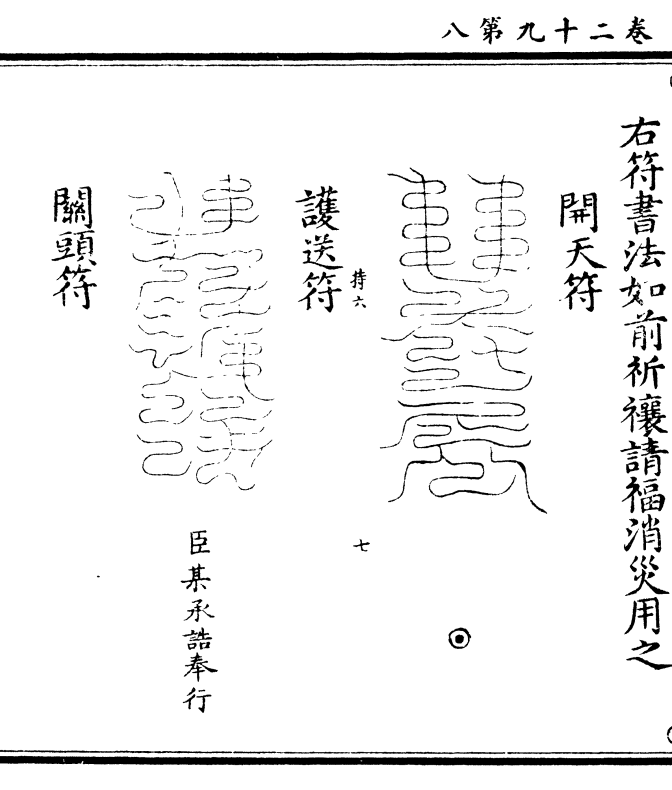 卷二十九第八
右符書法如前祈禳請福消災用之
開天符
持六
七
護送符
臣某承誥奉行
關頭符